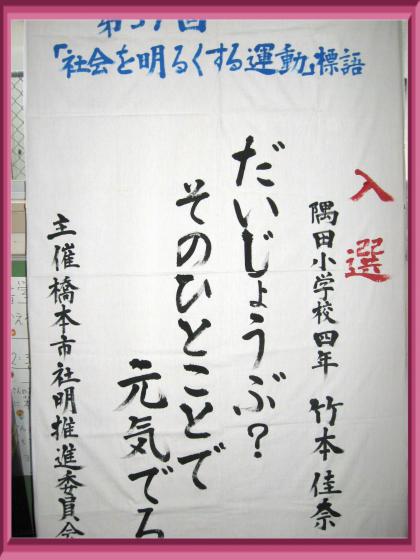 第57回
「社会を明るくする運動」標語
入選
隅田小学校四年 竹本佳奈
だいじょうぶ?
そのひとことで
元気でる
主催橋本市社明推進委員会